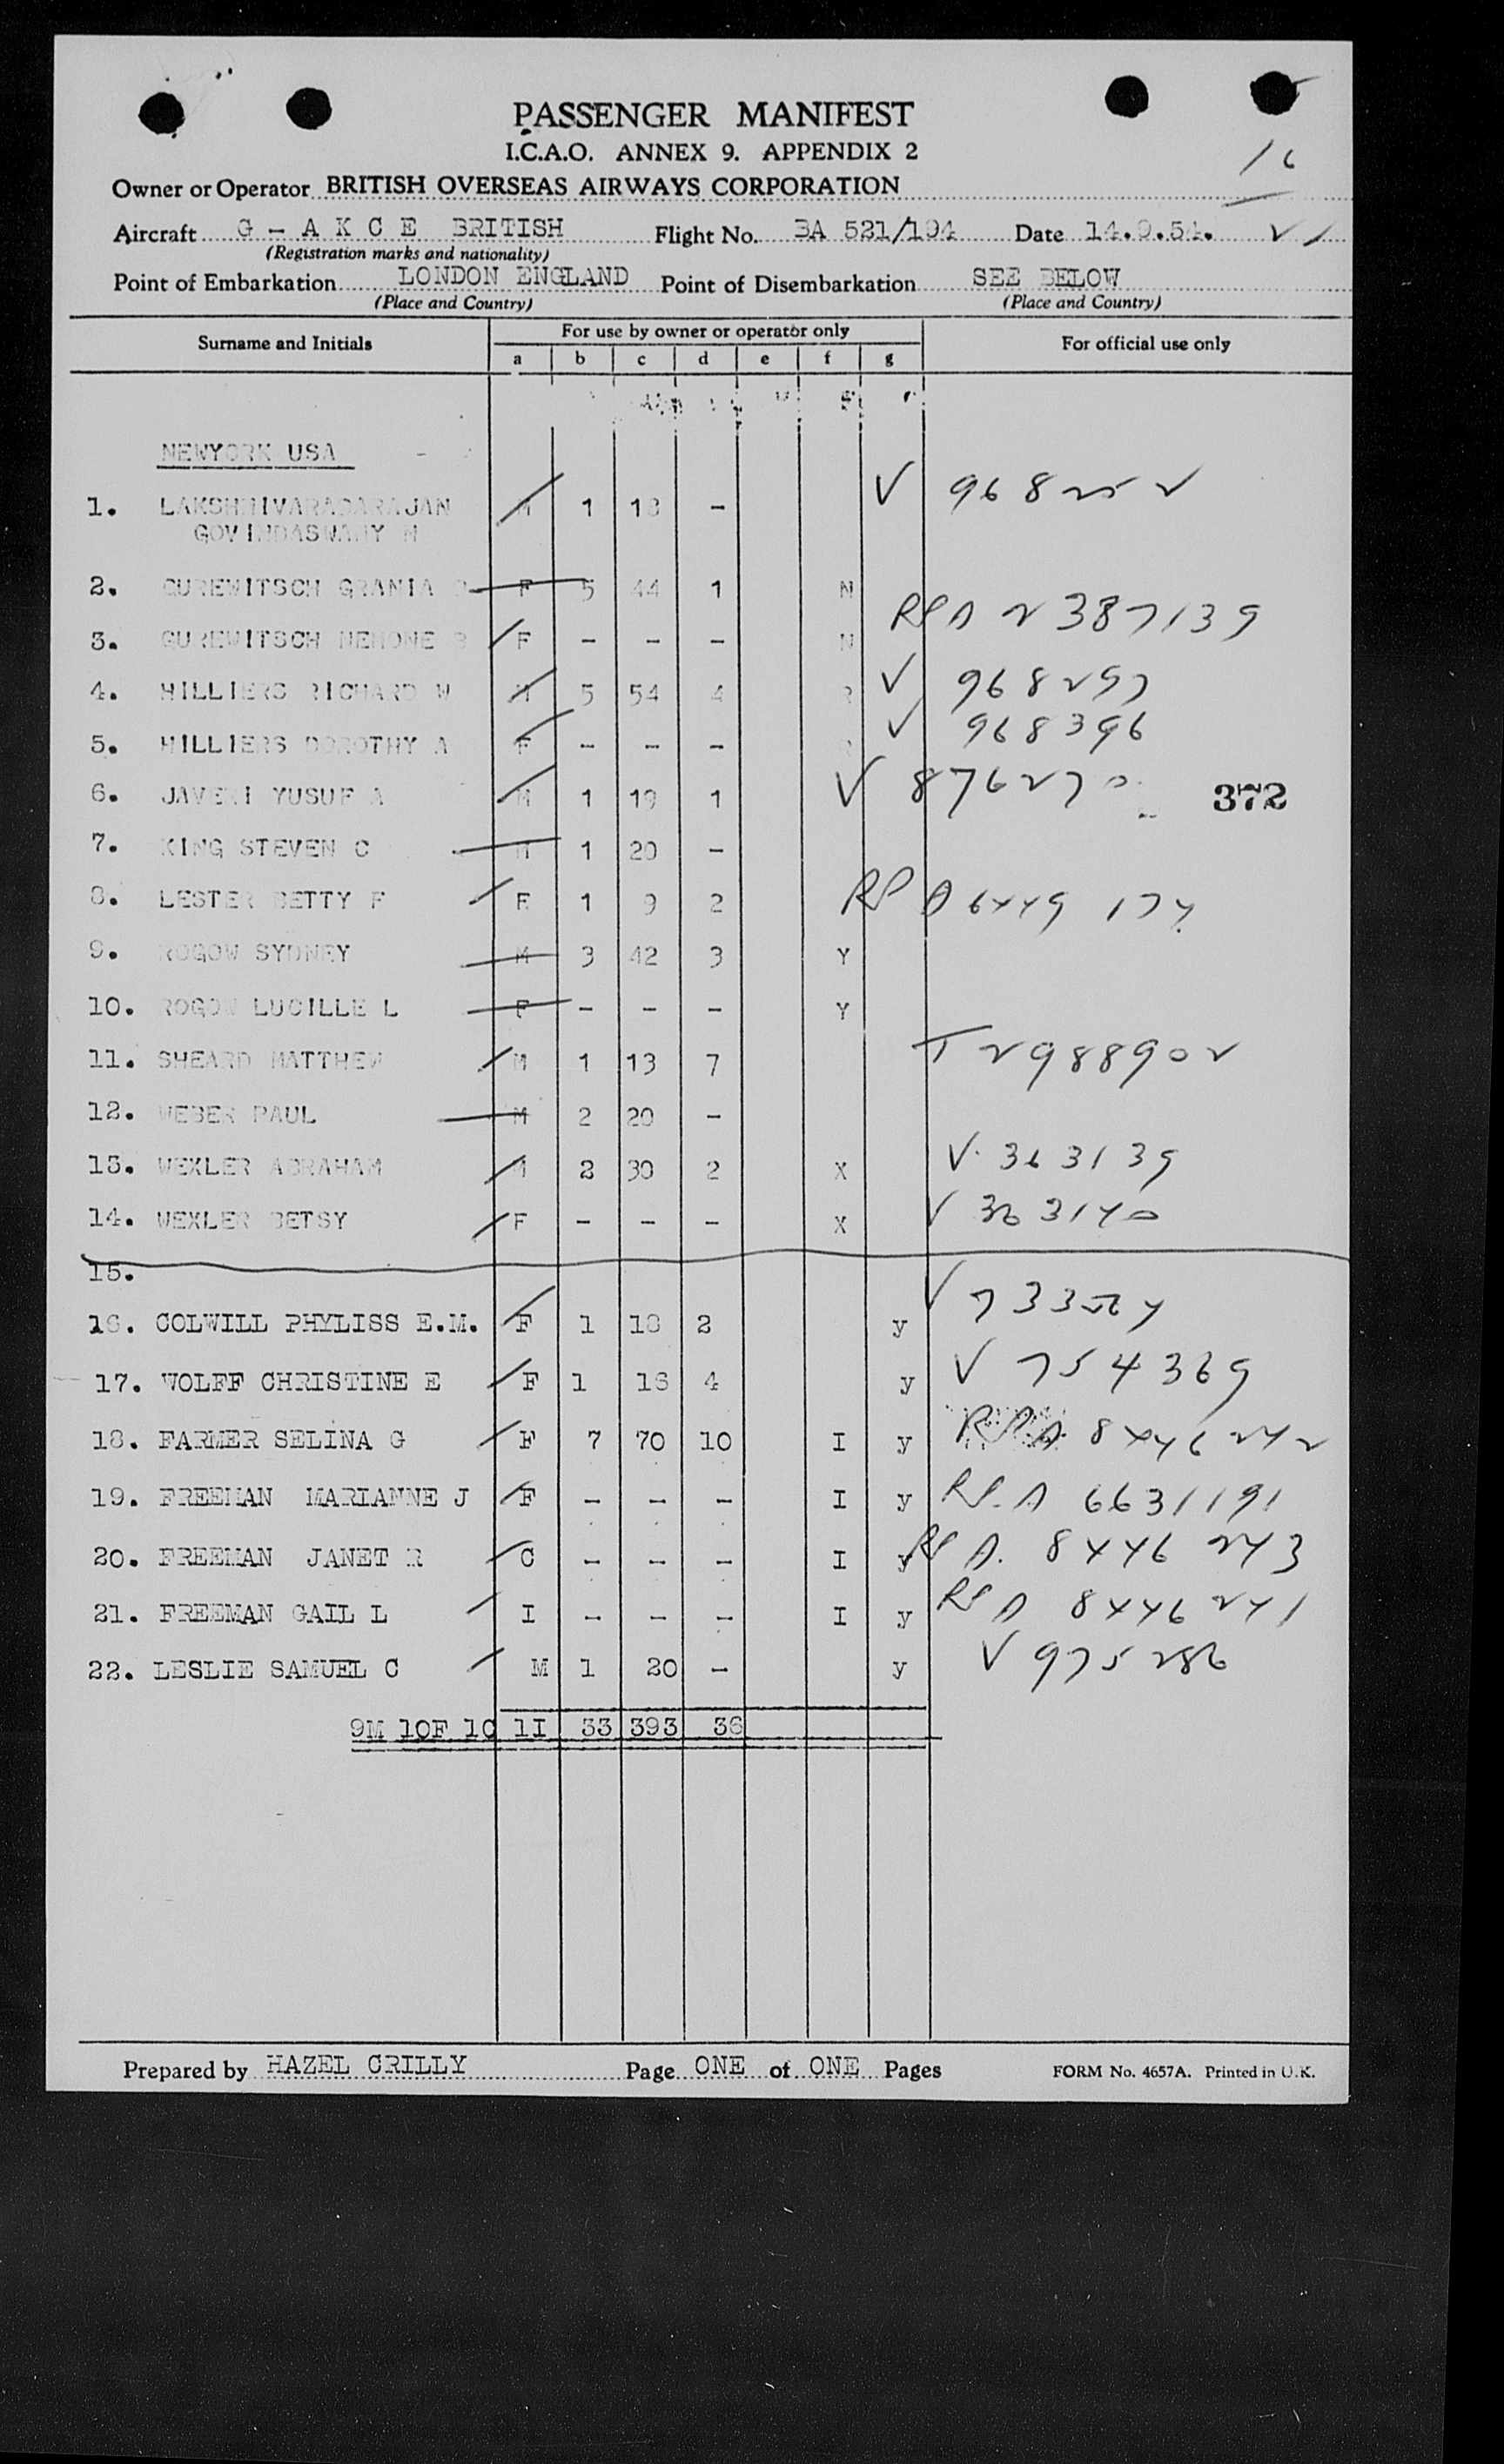 PASSENGER MANIFEST
I.C.A.O. ANNEX 9. APPENDIX 2
16
Owner or Operator BRITISH OVERSEAS AIRWAYS CORPORATION
Aircraft G - A K C E BRITISH Flight No. BA 521/194 Date 14.9.54.
(Registration marks and nationality)
Point of Embarkation LONDON ENGLAND Point of Disembarkation SEE BELOW
(Place and Country) (Place and Country)
Surname and Initials For use by owner or operator only For official use only
a b c d e f g
NEWYORK USA
1. M 1 18 - V
GOVINDASWAMY N
2. GUREWITSCH GRANIA F 5 44 1 N
3. GUREWITSCH NEMONE B F - - - N RP A 2387139
4. HILLIERS RICHARD W M 5 54 4 R V 968297
5. HILLIERS DOROTHY A F - - - R V 968396
6. YUSUF A M 1 19 1 V 876270 372
7. KING STEVEN C M 1 20 -
8. LESTER BETTY F F 1 9 2 RP A 6449 174
9. ROGOW SYDNEY M 3 42 3 Y
10. ROGOW LUCILLE L F - - - Y
11. SHEARD MATTHEW M 1 13 7 T 2988902
12. WEBER PAUL M 2 20 -
13. WEXLER ABRAHAM M 2 30 2 X V. 363139
14. WEXLER BETSY F - - - X V 363140
15.
16. COLWILL PHYLISS E.M. F 1 18 2 y V
17. WOLFF CHRISTINE E F 1 16 4 y V 754369
18. FARMER SELINA G F 7 70 10 I y RP A 8446242
19. FREEMAN MARIANNE J F - - - I y RP. A 6631191
20. FREEMAN JANET R C - - - I y RP A. 8446 243
21. FREEMAN GAIL L I - - - I y RP A 8446241
22. LESLIE SAMUEL C M 1 20 - y V 975286
9M 10F 1C 1I 33 393 36
Prepared by HAZEL CRILLY Page ONE of ONE Pages FORM No. 4657A. Printed in U.K.